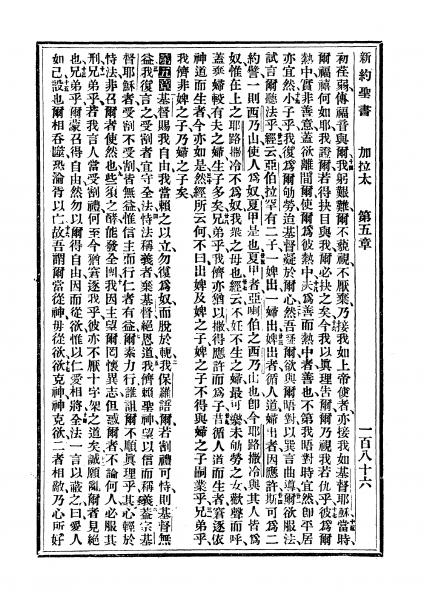 新約聖書 加拉太 第五章 一百八十六
初荏弱傳福音與爾我躬艱難爾不藐視不厭棄乃接我如上帝使者亦接我如基督耶穌當時
爾福禧何如耶我證爾者得抉目與我爾必抉之矣今我以真理告爾爾乃視我若仇乎彼為爾
熱中實非善意蓋欲離間爾使爾為彼熱中夫為善而熱中者善也不第我晤對時宜然即平居
亦宜然小子乎我復為爾劬勞迨基督凝於爾心然吾疑爾欲與爾晤對以異言曲導爾欲服法
試言爾聽法乎經云亞伯拉罕有二子一婢出一婦出婢出者循人道婦出者因應許斯可為二
約譬一則西乃山使人為奴夏甲是也夏甲者亞喇伯之西乃山也即今耶路撒冷與其人皆為
奴惟在上之耶路撒冷不為奴我眾之母也經云不妊不生之婦最可樂未劬勞之女歡聲而呼
蓋棄婦較有夫之婦生子多矣兄弟乎我儕亦猶以撒得應許而為子昔循人道而生者窘逐依
神道而生者今亦如是然經所云何不曰出婢及婢之子婢之子不得與婦之子嗣業乎兄弟乎
我儕非婢之子乃婦之子矣
第五章基督賜我自由我當賴之以立勿復為奴而脫於軛我保羅語爾若割禮可恃則基督無
益我復言之受割者宜守全法恃法稱義者棄基督絕恩道我儕賴聖神望以信而稱義蓋宗基
督耶穌者受割不受割皆無益惟信主而行仁者有益爾素力行誰訊爾不順真理乎其心輕於
恃法非召爾者使然也些須之酵能發全團我因主望爾罔懷異志但惑爾者不論何人必服其
刑兄弟乎若我言人當受割禮何至今猶窘逐我乎彼亦不厭十字架之道矣誠願亂爾者見絕
也兄弟乎爾蒙召得自由然勿以爾得自由因而從欲惟以仁愛相將全法一言以蔽之曰愛人
如己設也爾相吞噬恐淪胥以亡故吾謂爾當從神毋從欲欲克神神克欲二者相敵乃心所好